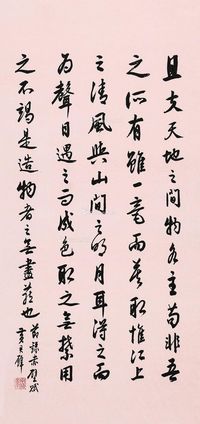 且夫天地之間物各主苟非吾
之所有雖一毫而莫取惟江上
之清風與山間之明月耳得之而
為聲目遇之而成色取之無禁用
之不竭是造物者之無盡藏也
節錄赤壁賦